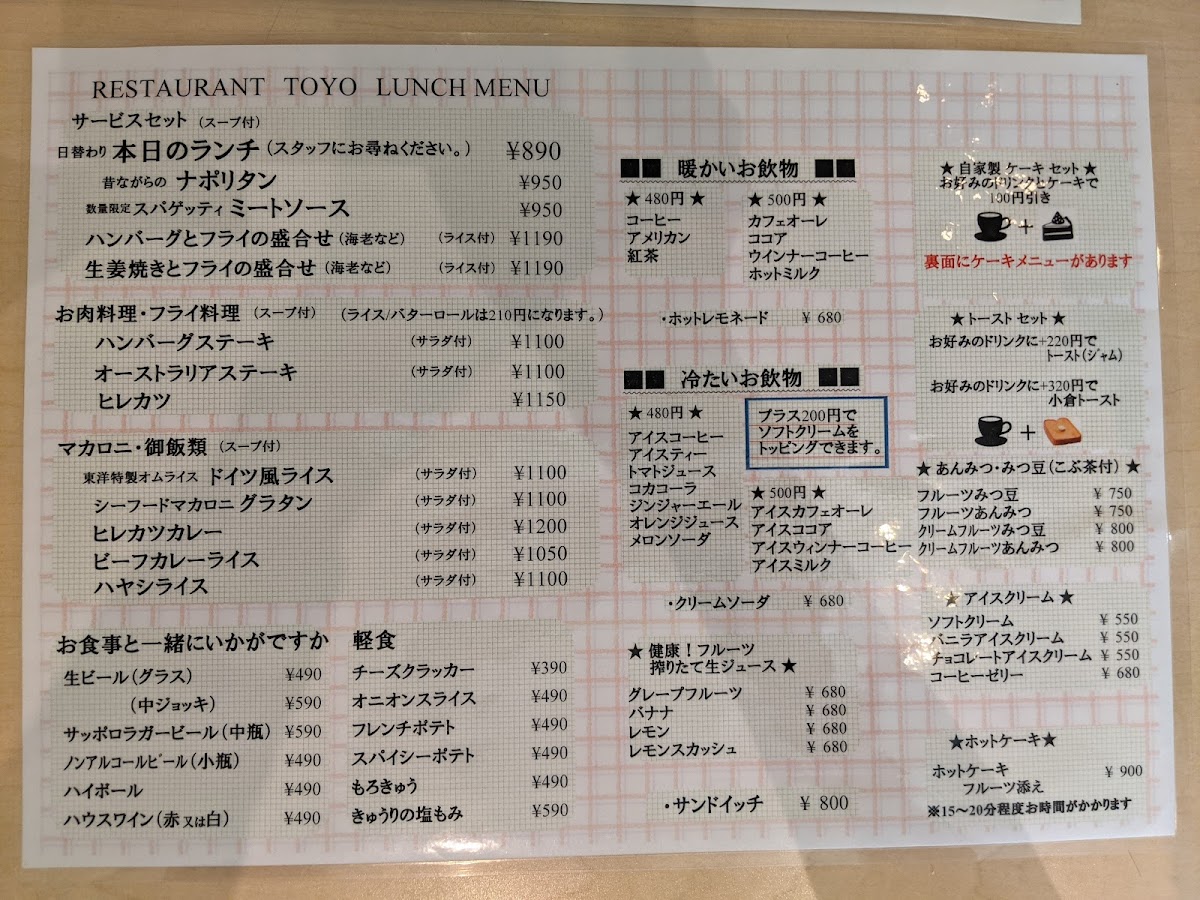 RESTAURANT TOYO LUNCH MENU
サービスセット (スープ付)
日替わり 本日のランチ (スタッフにお尋ねください。) ¥890
昔ながらの ナポリタン ¥950
数量限定 スパゲッティ ミートソース ¥950
ハンバーグとフライの盛合せ (海老など) (ライス付) ¥1190
生姜焼きとフライの盛合せ (海老など) (ライス付) ¥1190
お肉料理・フライ料理 (スープ付) (ライス/バターロールは210円になります。)
ハンバーグステーキ (サラダ付) ¥1100
オーストラリアステーキ (サラダ付) ¥1100
ヒレカツ ¥1150
マカロニ・御飯類 (スープ付)
東洋特製オムライス ドイツ風ライス (サラダ付) ¥1100
シーフードマカロニ グラタン (サラダ付) ¥1100
ヒレカツカレー (サラダ付) ¥1200
ビーフカレーライス (サラダ付) ¥1050
ハヤシライス (サラダ付) ¥1100
お食事と一緒にいかがですか
生ビール (グラス) ¥490
(中ジョッキ) ¥590
サッポロラガービール (中瓶) ¥590
ノンアルコールビール (小瓶) ¥490
ハイボール ¥490
ハウスワイン (赤 又は 白) ¥490
軽食
チーズクラッカー ¥390
オニオンスライス ¥490
フレンチポテト ¥490
スパイシーポテト ¥490
もろきゅう ¥490
きゅうりの塩もみ ¥590
■■ 暖かいお飲物 ■■
★ 480円 ★
コーヒー
アメリカン
紅茶
★ 500円 ★
カフェオーレ
ココア
ウインナーコーヒー
ホットミルク
・ホットレモネード ¥ 680
■■ 冷たいお飲物 ■■
★ 480円 ★
アイスコーヒー
アイスティー
トマトジュース
コカコーラ
ジンジャーエール
オレンジジュース
メロンソーダ
プラス200円で
ソフトクリームを
トッピングできます。
★ 500円 ★
アイスカフェオーレ
アイスココア
アイスウィンナーコーヒー
アイスミルク
・クリームソーダ ¥ 680
★ 健康！フルーツ
搾りたて生ジュース ★
グレープフルーツ ¥ 680
バナナ ¥ 680
レモン ¥ 680
レモンスカッシュ ¥ 680
・サンドイッチ ¥ 800
★ 自家製 ケーキ セット ★
お好みのドリンクとケーキで
100円引き
+
裏面にケーキメニューがあります
★ トースト セット ★
お好みのドリンクに+220円で
トースト(ジャム)
お好みのドリンクに+320円で
小倉トースト
+
★ あんみつ・みつ豆 (こぶ茶付) ★
フルーツみつ豆 ¥ 750
フルーツあんみつ ¥ 750
クリームフルーツみつ豆 ¥ 800
クリームフルーツあんみつ ¥ 800
★ アイスクリーム ★
ソフトクリーム ¥ 550
バニラアイスクリーム ¥ 550
チョコレートアイスクリーム ¥ 550
コーヒーゼリー ¥ 680
★ホットケーキ★
ホットケーキ ¥ 900
フルーツ添え
※15～20分程度お時間がかかります